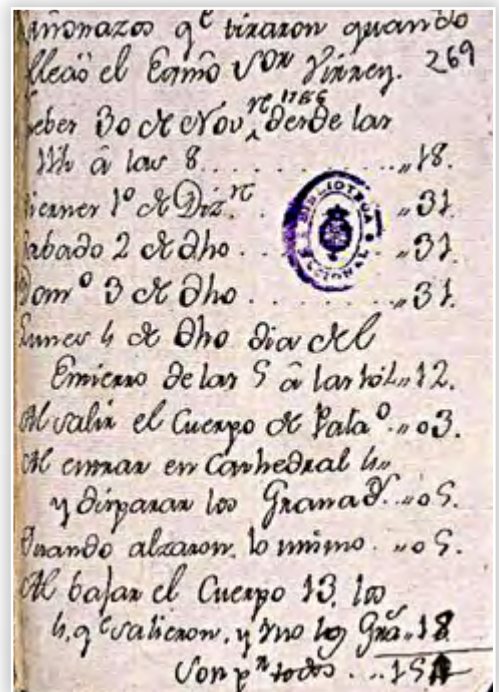 añonazos q.e tiraron quando
llegó el Exmô S.or Virrey. 269
30 de Nov.re 1786 desde las
â las 8 . . . . . . . „18.
Viernes 1.º de Diz.re . „31.
Sabado 2 de dho . . „31.
Dom.º 3 de dho . . . . . „31.
Lunes 4 de dho dia del
Entierro de las 5 â las „12.
Al salir el Cuerpo de Pala.º . „03.
Al entrar en Cathedral 4„
y disparar los Granad.s . „05.
Quando alzaron, lo mismo . „05.
Al bajar el Cuerpo 13. los
4, q.e salieron, y uno los Gra.s „18
Son p.r todos . . . 154
BIBLIOTECA NACIONAL